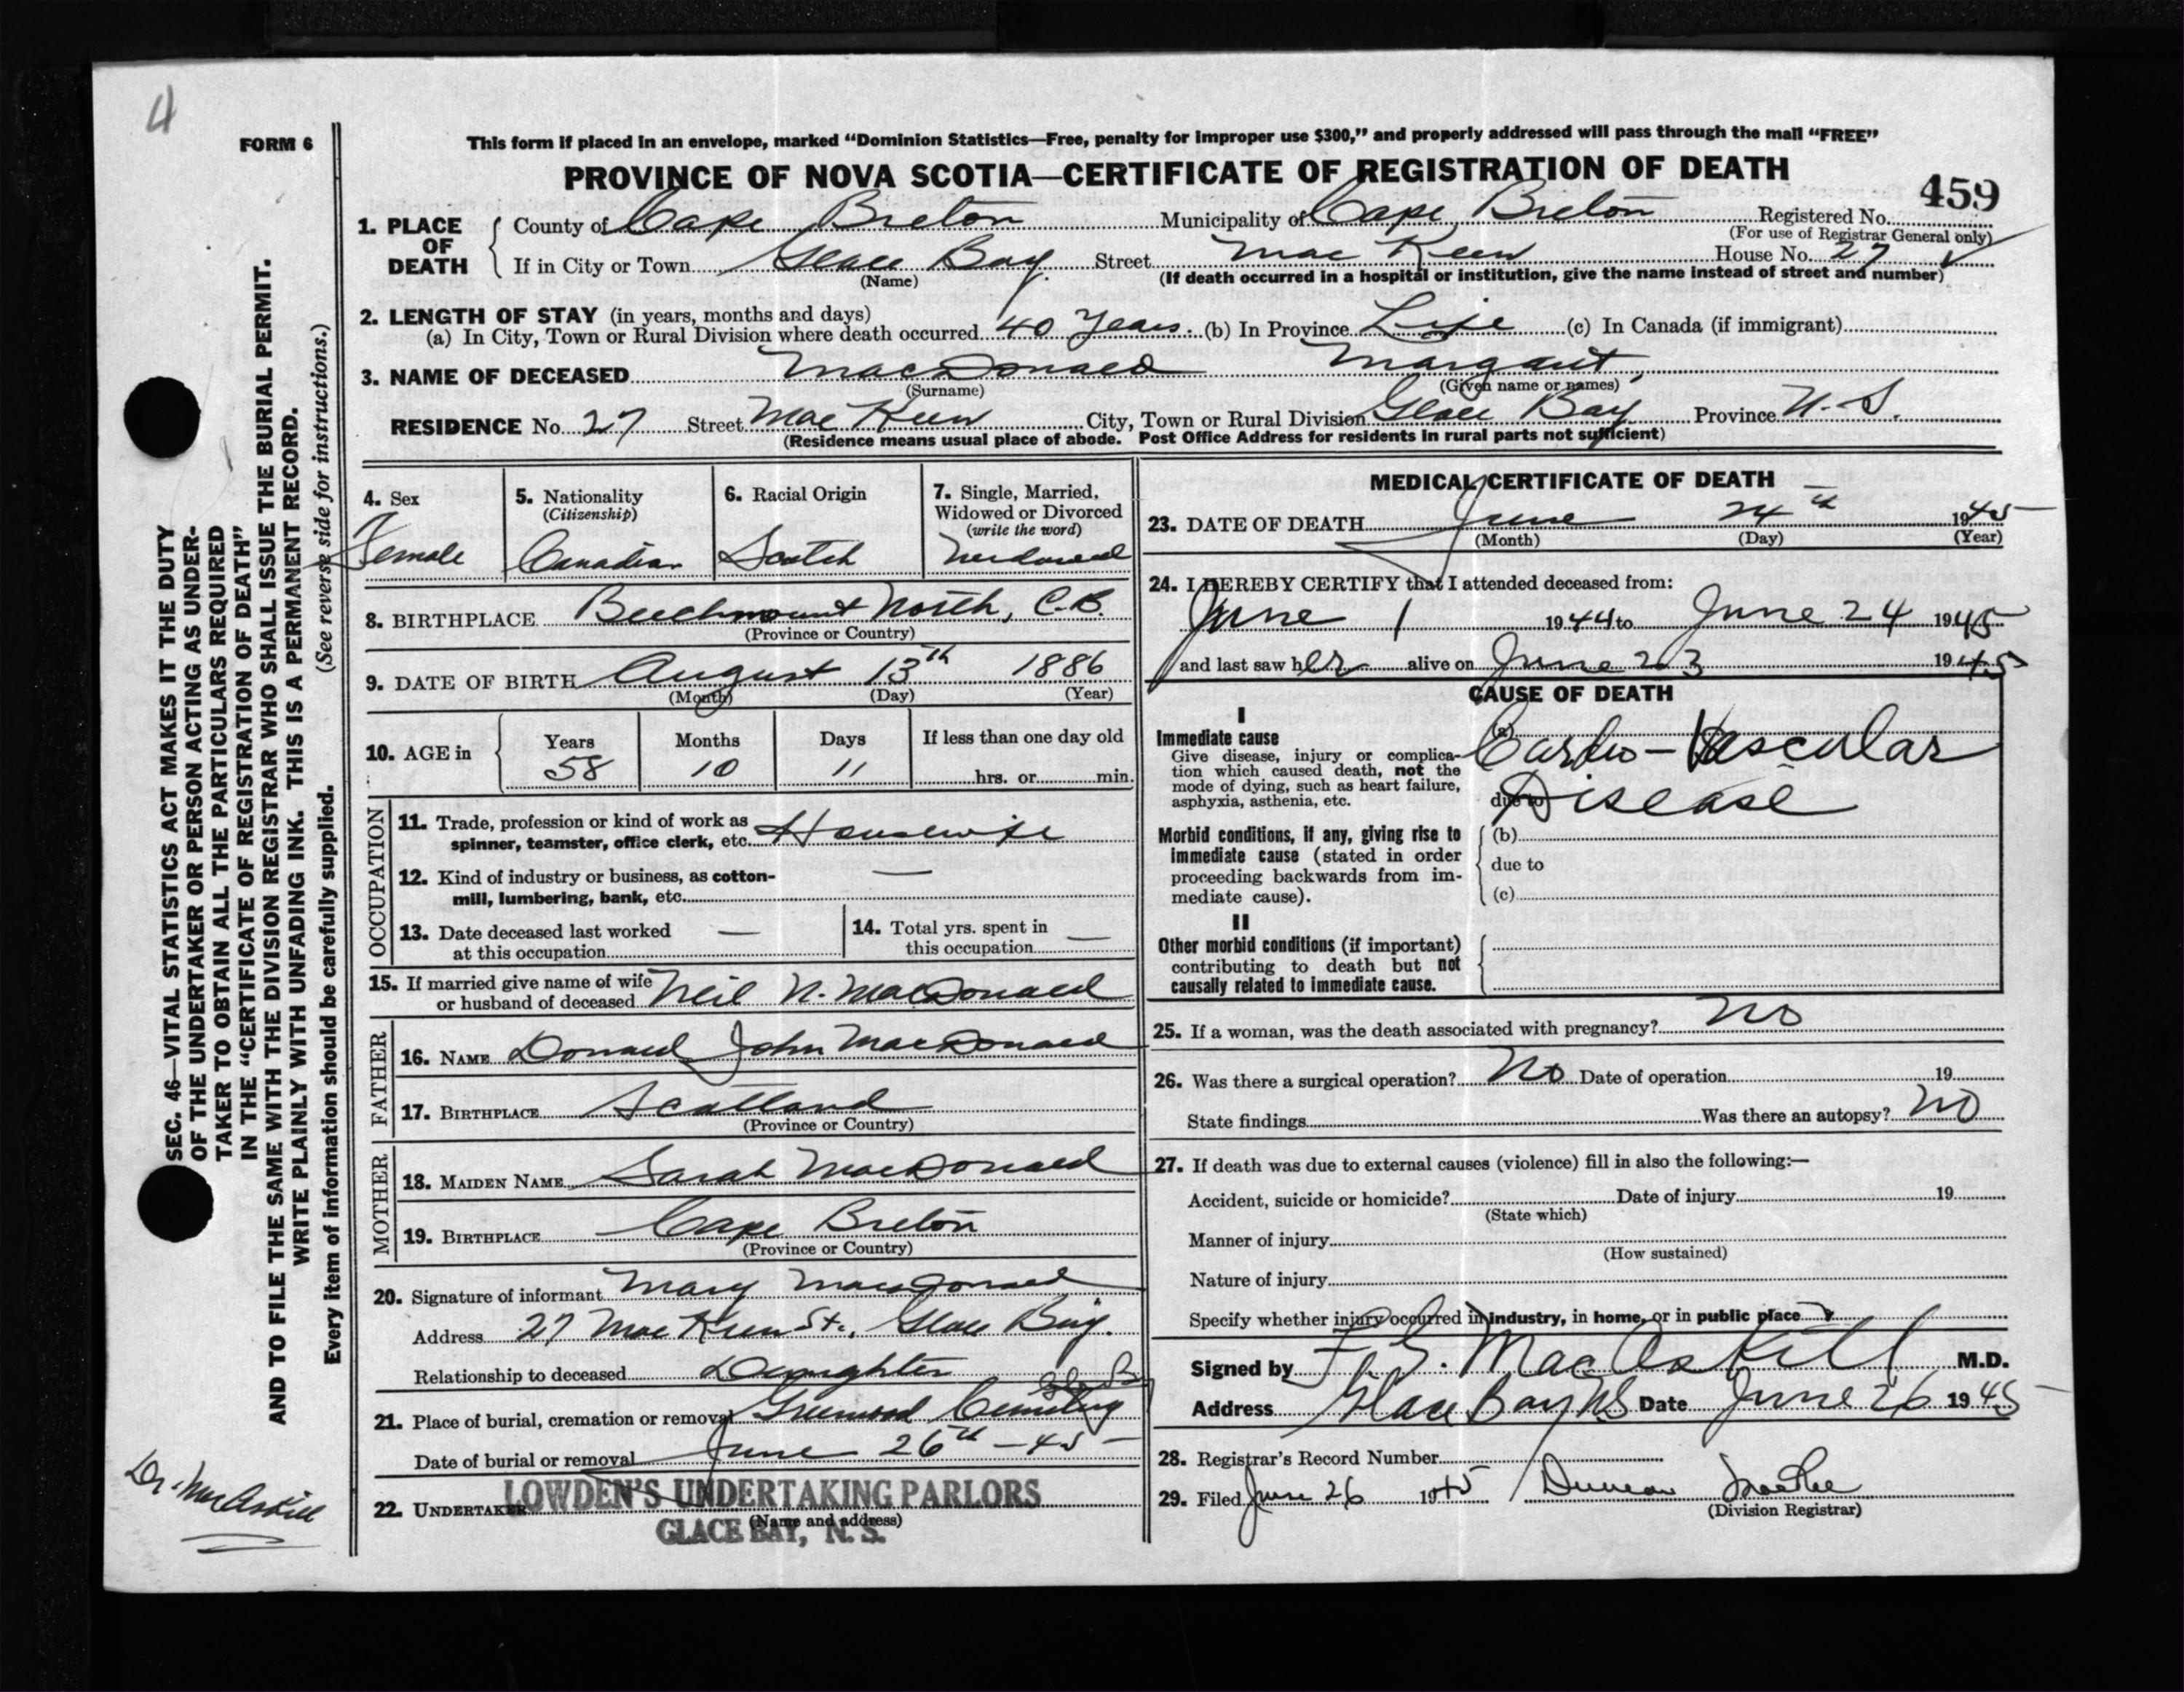 4
FORM 6
This form if placed in an envelope, marked “Dominion Statistics—Free, penalty for improper use $300,” and properly addressed will pass through the mail “FREE”
PROVINCE OF NOVA SCOTIA—CERTIFICATE OF REGISTRATION OF DEATH
459
1. PLACE OF DEATH
County of Cape Breton Municipality of Cape Breton Registered No.
(For use of Registrar General only)
If in City or Town Glace Bay Street MacKeen House No. 27
(Name) (If death occurred in a hospital or institution, give the name instead of street and number)
2. LENGTH OF STAY (in years, months and days)
(a) In City, Town or Rural Division where death occurred 40 years. (b) In Province Life (c) In Canada (if immigrant)
3. NAME OF DECEASED MacDonald Margaret
(Surname) (Given name or names)
RESIDENCE No. 27 Street MacKeen City, Town or Rural Division Glace Bay Province N.S.
(Residence means usual place of abode. Post Office Address for residents in rural parts not sufficient)
4. Sex
Female
5. Nationality
(Citizenship)
Canadian
6. Racial Origin
Scotch
7. Single, Married, Widowed or Divorced
(write the word)
Widowed
8. BIRTHPLACE Beechmount North, C.B.
(Province or Country)
9. DATE OF BIRTH August 13th 1886
(Month) (Day) (Year)
10. AGE in
Years Months Days If less than one day old
58 10 11 hrs. or min.
OCCUPATION
11. Trade, profession or kind of work as
spinner, teamster, office clerk, etc. Housewife
12. Kind of industry or business, as cotton-
mill, lumbering, bank, etc. —
13. Date deceased last worked
at this occupation —
14. Total yrs. spent in
this occupation —
15. If married give name of wife
or husband of deceased Neil N. MacDonald
FATHER
16. NAME Donald John MacDonald
17. BIRTHPLACE Scotland
(Province or Country)
MOTHER
18. MAIDEN NAME Sarah MacDonald
19. BIRTHPLACE Cape Breton
(Province or Country)
20. Signature of informant Mary MacDonald
Address 27 MacKeen St., Glace Bay.
Relationship to deceased Daughter
21. Place of burial, cremation or removal Greenwood Cemetery
Date of burial or removal June 26th - 45
22. UNDERTAKER LOWDEN'S UNDERTAKING PARLORS
(Name and address)
GLACE BAY, N. S.
MEDICAL CERTIFICATE OF DEATH
23. DATE OF DEATH June 24th 1945
(Month) (Day) (Year)
24. I HEREBY CERTIFY that I attended deceased from:
June 1 1944 to June 24 1945
and last saw her alive on June 23 1945
CAUSE OF DEATH
I
Immediate cause
Give disease, injury or complica-
tion which caused death, not the
mode of dying, such as heart failure,
asphyxia, asthenia, etc.
(a) Cardio-Vascular
due to Disease
Morbid conditions, if any, giving rise to
immediate cause (stated in order
proceeding backwards from im-
mediate cause).
(b)
due to
(c)
II
Other morbid conditions (if important)
contributing to death but not
causally related to immediate cause.
25. If a woman, was the death associated with pregnancy? No
26. Was there a surgical operation? No Date of operation 19
State findings Was there an autopsy? No
27. If death was due to external causes (violence) fill in also the following:—
Accident, suicide or homicide? Date of injury 19
(State which)
Manner of injury
(How sustained)
Nature of injury
Specify whether injury occurred in industry, in home, or in public place?
Signed by MacAskill M.D.
Address Glace Bay NS Date June 26 1945
28. Registrar's Record Number
29. Filed June 26 1945 Duncan
(Division Registrar)
SEC. 46—VITAL STATISTICS ACT MAKES IT THE DUTY
OF THE UNDERTAKER OR PERSON ACTING AS UNDER-
TAKER TO OBTAIN ALL THE PARTICULARS REQUIRED
IN THE “CERTIFICATE OF REGISTRATION OF DEATH”
AND TO FILE THE SAME WITH THE DIVISION REGISTRAR WHO SHALL ISSUE THE BURIAL PERMIT.
WRITE PLAINLY WITH UNFADING INK. THIS IS A PERMANENT RECORD.
Every item of information should be carefully supplied. (See reverse side for instructions.)
Dr. MacAskill